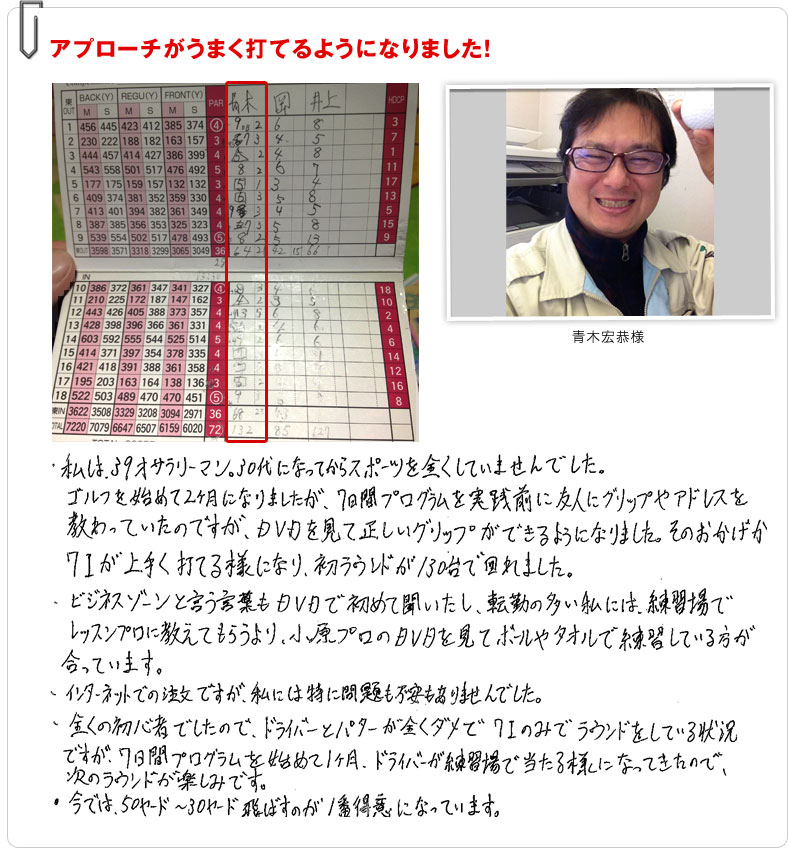 アプローチがうまく打てるようになりました!
東 OUT BACK(Y) REGU(Y) FRONT(Y) PAR 青木 岡 井上 HDCP
M S M S M S
1 456 445 423 412 385 374 ④ 9 2 6 8 3
2 230 222 188 182 163 157 3 7 3 4 5 7
3 444 457 414 427 386 399 4 2 4 8 1
4 543 558 501 517 476 492 5 8 2 6 7 11
5 177 175 159 157 132 132 3 5 1 3 4 17
6 409 374 381 352 359 330 4 3 5 8 13
7 413 401 394 382 361 349 4 3 4 5 5
8 387 385 356 353 325 323 4 7 3 5 8 15
9 539 554 502 517 478 493 ⑤ 8 2 5 13 9
3598 3571 3318 3299 3065 3049 36 64 2 42 15 66
IN
10 386 372 361 347 341 327 ④ 3 18
11 210 225 172 187 147 162 3 2 3 5 10
12 443 426 405 388 373 357 4 5 6 8 2
13 428 398 396 366 361 331 4 4
14 603 592 555 544 525 514 5 2 6 6
15 414 371 397 354 378 335 4 14
16 421 418 391 388 361 358 4 12
17 195 203 163 164 138 136 3 16
18 522 503 489 470 470 451 ⑤ 8
東IN 3622 3508 3329 3208 3094 2971 36 68
TOTAL 7220 7079 6647 6507 6159 6020 72 132 85 127
青木宏恭様
・私は、39才サラリーマン。30代になってからスポーツを全くしていませんでした。
ゴルフを始めて2ヶ月になりましたが、7日間プログラムを実践前に友人にグリップやアドレスを
教わっていたのですが、DVDを見て正しいグリップができるようになりました。そのおかげか
7Iが上手く打てる様になり、初ラウンドが130台で回れました。
・ビジネスゾーンと言う言葉もDVDで初めて聞いたし、転勤の多い私には、練習場で
レッスンプロに教えてもらうより、小原プロのDVDを見てボールやタオルで練習している方が
合っています。
・インターネットでの注文ですが、私には特に問題も不安もありませんでした。
・全くの初心者でしたので、ドライバーとパターが全くダメで7Iのみでラウンドをしている状況
ですが、7日間プログラムを始めて1ヶ月、ドライバーが練習場で当たる様になってきたので、
次のラウンドが楽しみです。
・今では、50ヤード〜30ヤード飛ばすのが1番得意になっています。